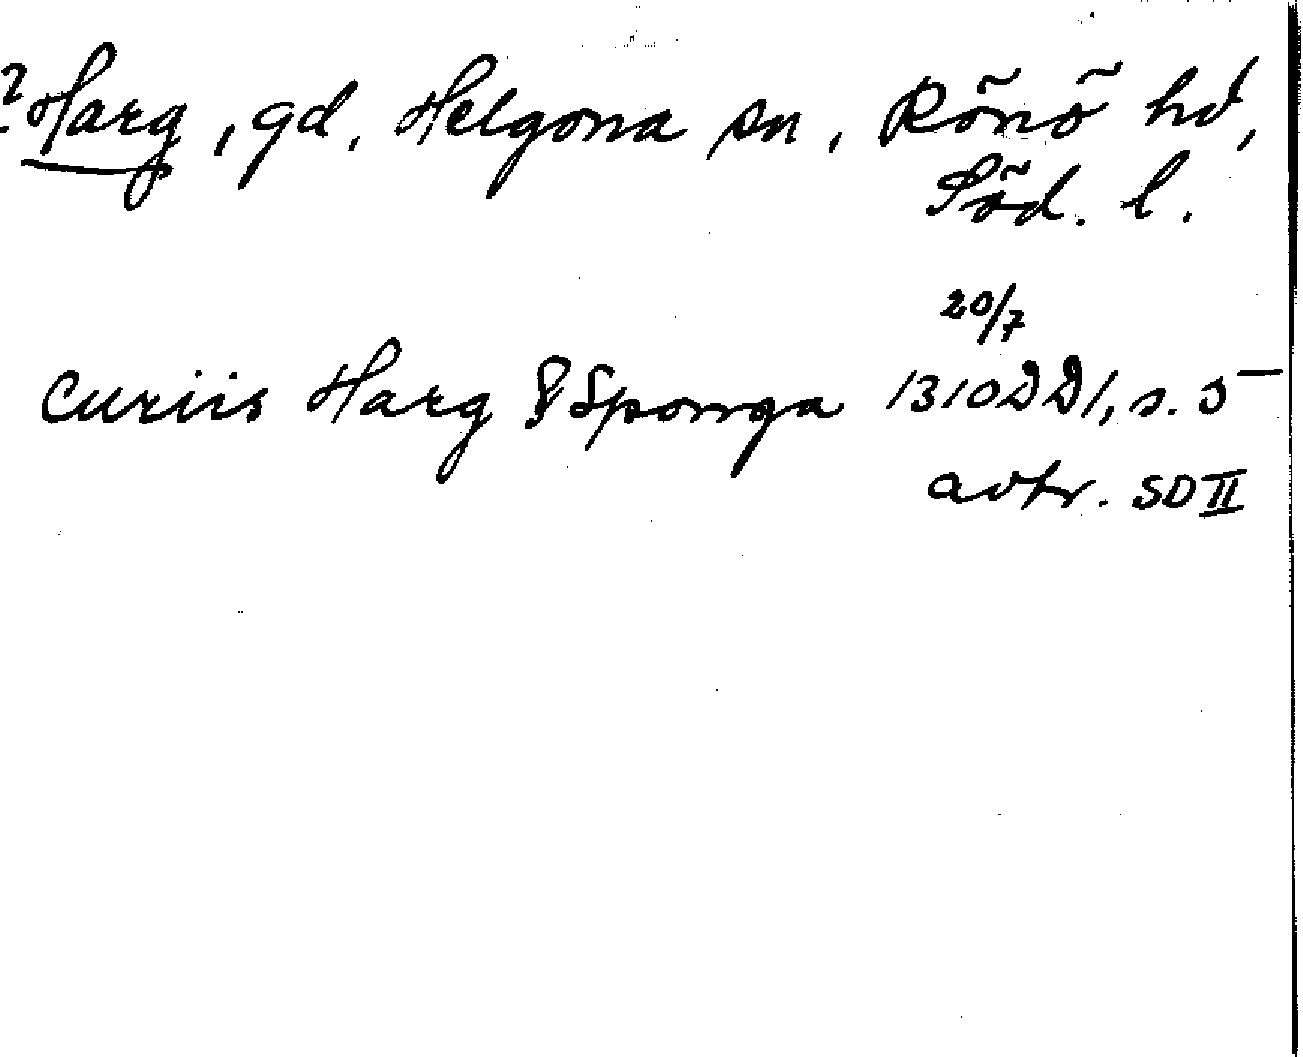 ? Harg, gd, Helgona sn, Rönö hd,
Söd. l.
20/7
curiis Harg & Sponga 1310 DD1, s. 5
avtr. SD II